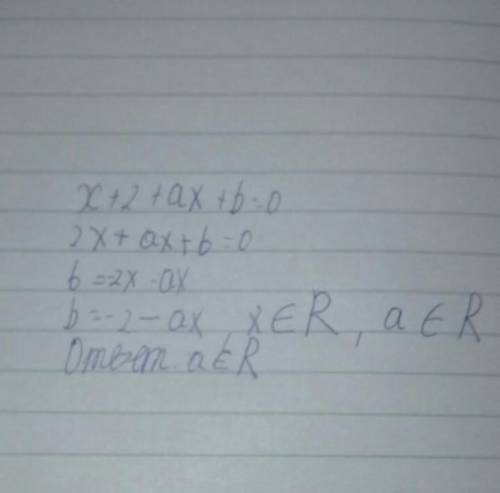 x+2+ax+b=0
2x+ax+b=0
b=-2x-ax
b=-2-ax, x∈R, a∈R
Ответ. a∈R